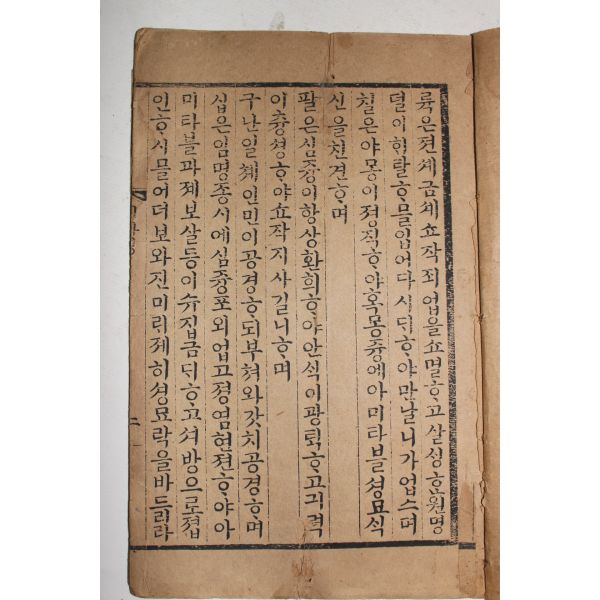 륙은젼셰금셰쇼작죄업을쇼멸ᄒᆞ고살셩ᄒᆞᆫ원명
덜이ᄒᆡ탈ᄒᆞ믈입어다시ᄃᆡᄒᆞ야만날니가업스며
칠은야몽이졍직ᄒᆞ야혹몽즁에아미타불셩묘식
신을친견ᄒᆞ며
팔은심즁이항상환희ᄒᆞ야안식이광퇵ᄒᆞ고긔력
이츙셩ᄒᆞ야쇼작지사길니ᄒᆞ며
구난일쳬인민이공경ᄒᆞ되부쳐와갓치공경ᄒᆞ며
십은임명종시에심즁포외업고졍염현젼ᄒᆞ야아
미타불과졔보살등이슈집금ᄃᆡᄒᆞ고셔방으로졉
인ᄒᆞ시믈어더보와진미ᄅᆡ졔히셩묘락을바드리라
二